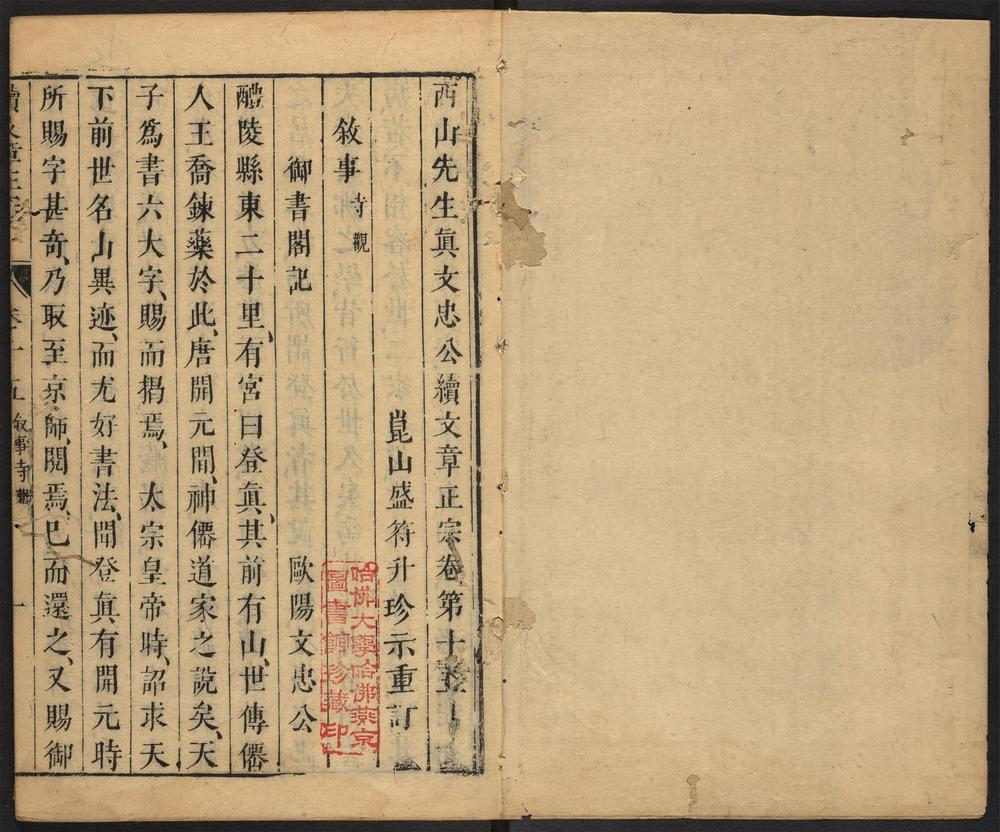 西山先生眞文忠公續文章正宗卷第十五
崑山盛符升珍示重訂
敘事寺觀
御書閣記 歐陽文忠公
醴陵縣東二十里、有宮曰登眞、其前有山、世傳僊
人王喬鍊藥於此、唐開元間、神僊道家之說矣、天
子爲書六大字、賜而揭焉、太宗皇帝時、詔求天
下前世名山異迹、而尤好書法、聞登眞有開元時
所賜字甚奇、乃取至京師、閱焉、巳而還之、又賜御
卷十五 敘事寺觀 一
哈佛大學哈佛燕京
圖書館珍藏印